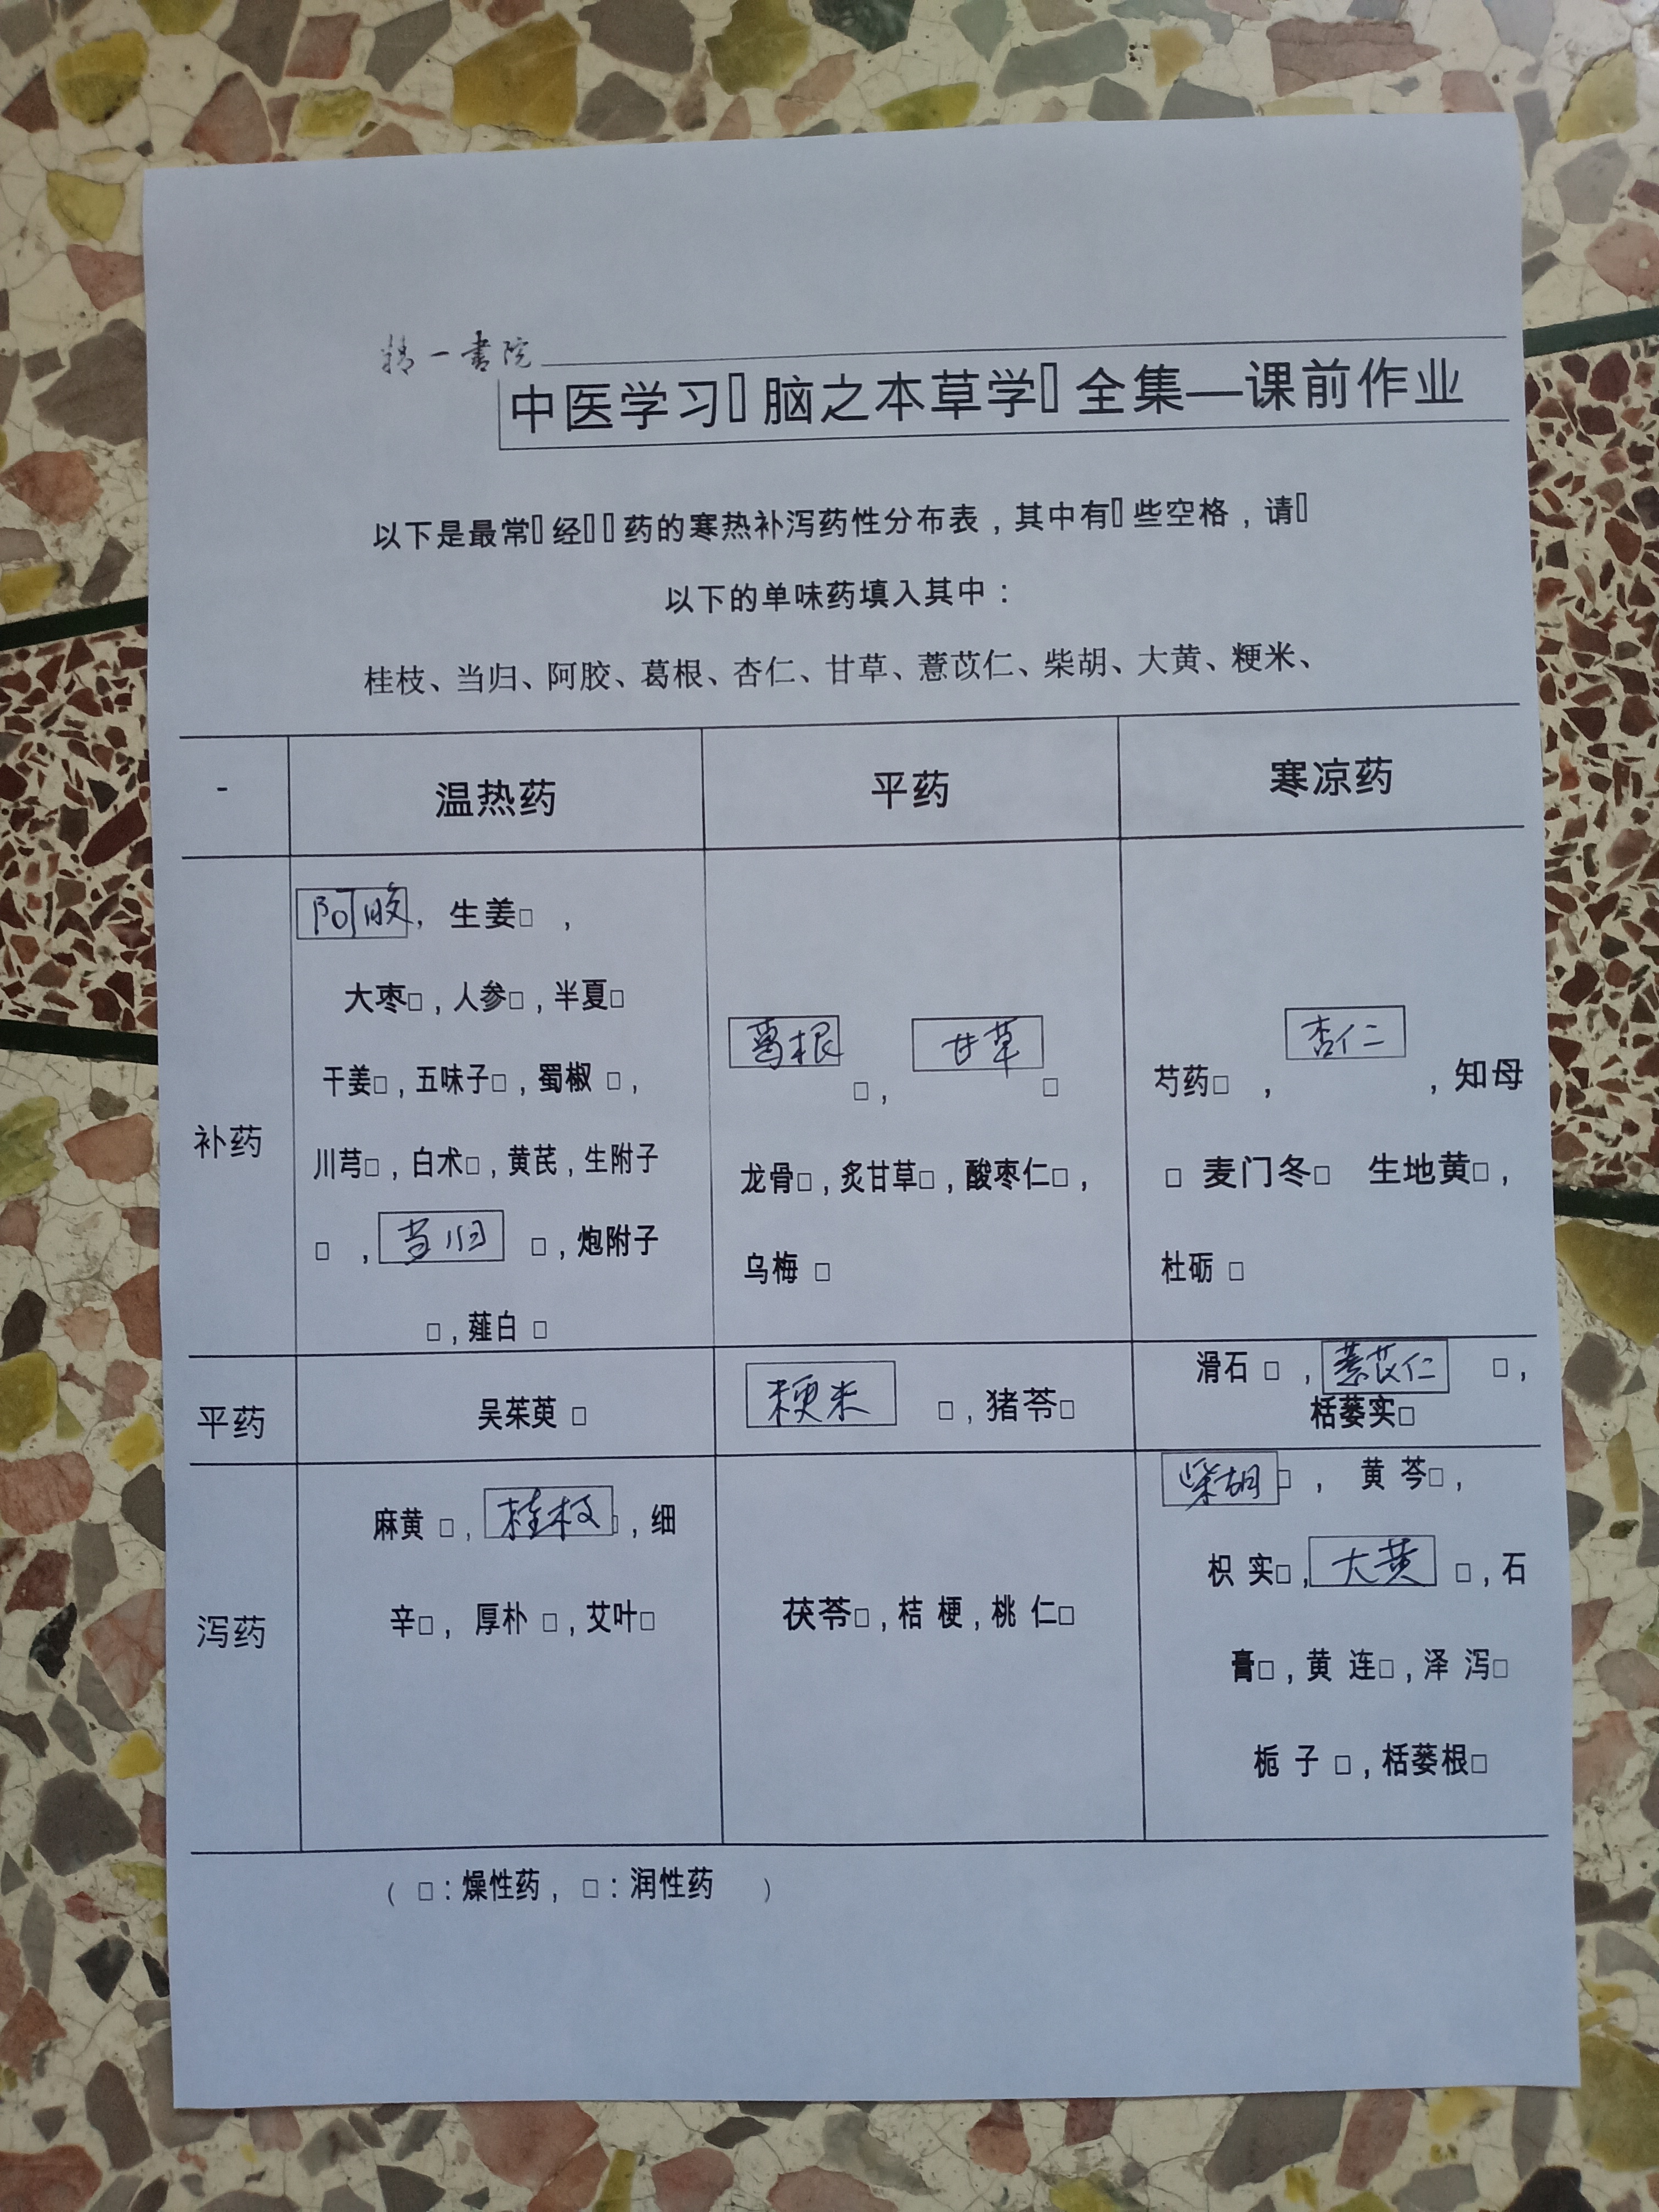 精一書院
中医学习▯脑之本草学▯全集—课前作业
以下是最常▯经▯▯药的寒热补泻药性分布表，其中有▯些空格，请▯
以下的单味药填入其中：
桂枝、当归、阿胶、葛根、杏仁、甘草、薏苡仁、柴胡、大黄、粳米、
- 温热药 平药 寒凉药
补药
阿胶，生姜□ ，
大枣□，人参□，半夏□
干姜□，五味子□，蜀椒 □，
川芎□，白术□，黄芪，生附子
□ ，当归 □，炮附子
□，薤白 □
葛根 □， 甘草 □
龙骨□，炙甘草□，酸枣仁□，
乌梅 □
芍药□ ，杏仁 ，知母
□ 麦门冬□ 生地黄□，
杜砺 □
平药
吴茱萸 □
粳米 □，猪苓□
滑石 □ ，薏苡仁 □，
栝蒌实□
泻药
麻黄 □，桂枝▯，细
辛□， 厚朴 □，艾叶□
茯苓□，桔 梗，桃 仁□
柴胡□ ， 黄 芩□，
枳 实□，大黄 □，石
膏□，黄 连□，泽 泻□
栀 子 □，栝蒌根□
（ □：燥性药， □：润性药 ）